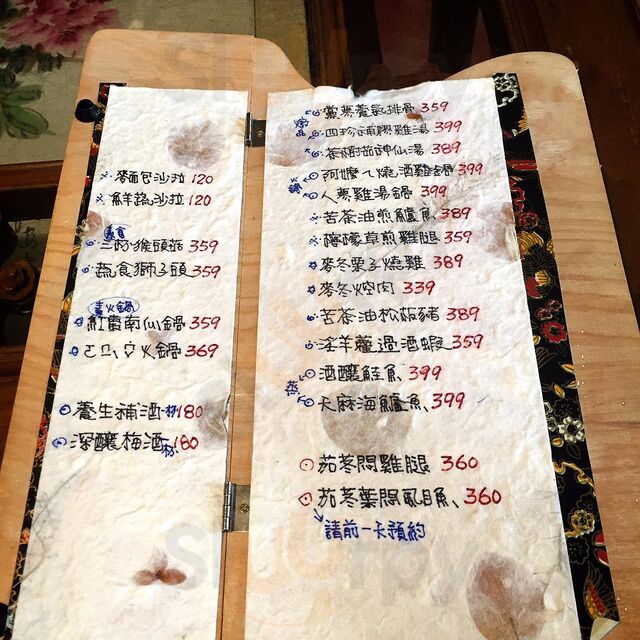 麵包沙拉 120
鮮蔬沙拉 120
素食
三杯猴頭菇 359
蔬食獅子頭 359
素火鍋
紅麴南仙鍋 359
火鍋 369
養生補酒 杯 180
深釀梅酒 杯 180
黨蔘養氣排骨 359
四珍補膠雞湯 399
茶樹菇神仙湯 389
火鍋
阿嬤ㄟ燒酒雞鍋 399
人蔘雞湯鍋 399
苦茶油煎鱸魚 389
檸檬草煎雞腿 359
麥冬栗子燒雞 389
麥冬焢肉 339
苦茶油松阪豬 389
淫羊藿過酒蝦 359
酒釀鮭魚 399
蒸
天麻海鱸魚 399
茄苳悶雞腿 360
茄苳葉悶虱目魚、360
請前一天預約